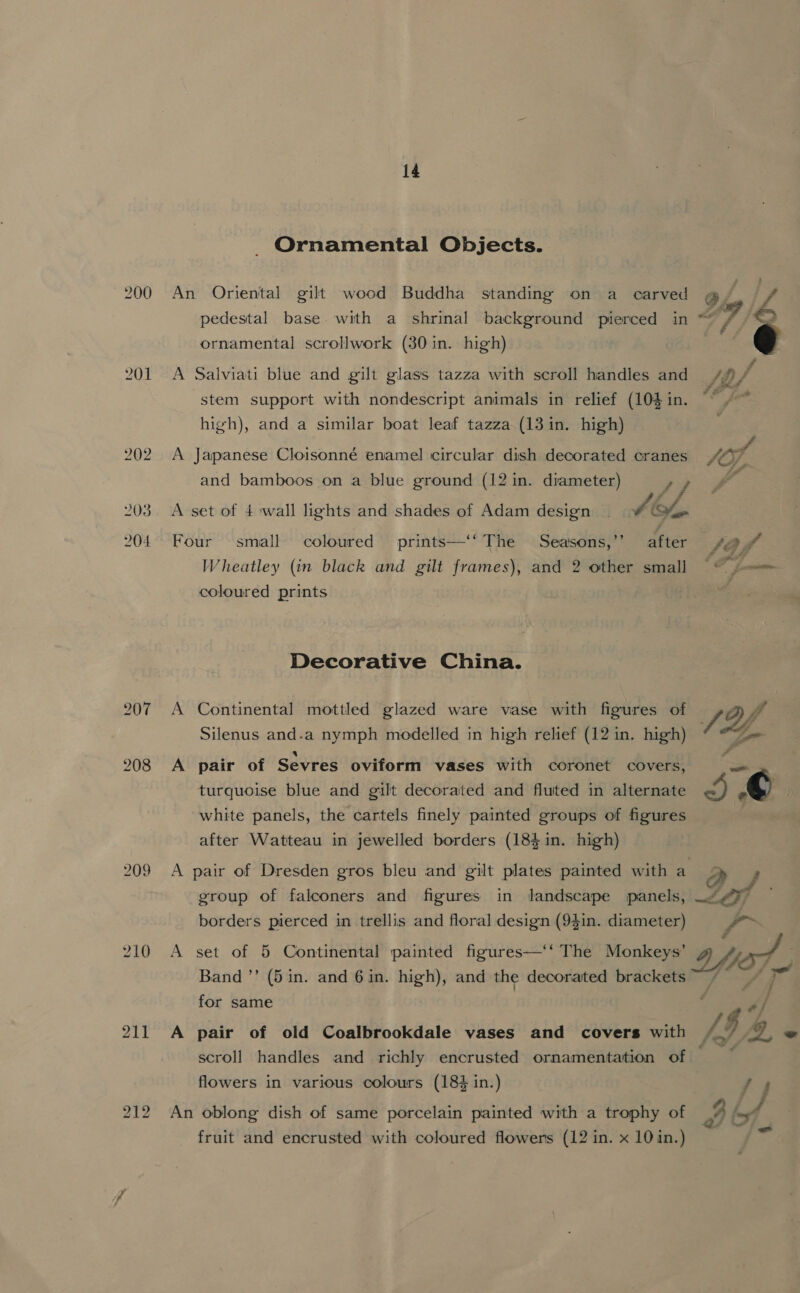 14
Ornamental Objects.
200 An Oriental gilt wood Buddha standing on a carved
pedestal base with a shrinal background pierced in
ornamental scrollwork (30 in. high)
201 A Salviati blue and gilt glass tazza with scroll handles and
stem support with nondescript animals in relief (10½ in.
high), and a similar boat leaf tazza (13 in. high)
202 A Japanese Cloisonné enamel circular dish decorated cranes
and bamboos on a blue ground (12 in. diameter)
203 A set of 4 wall lights and shades of Adam design
204 Four small coloured prints—‘‘ The Seasons,’’ after
Wheatley (in black and gilt frames), and 2 other small
coloured prints
Decorative China.
207 A Continental mottled glazed ware vase with figures of
Silenus and a nymph modelled in high relief (12 in. high)
208 A pair of Sevres oviform vases with coronet covers,
turquoise blue and gilt decorated and fluted in alternate
white panels, the cartels finely painted groups of figures
after Watteau in jewelled borders (18½ in. high)
209 A pair of Dresden gros bleu and gilt plates painted with a
group of falconers and figures in landscape panels,
borders pierced in trellis and floral design (9½in. diameter)
210 A set of 5 Continental painted figures—‘‘ The Monkeys’
Band ’’ (5 in. and 6 in. high), and the decorated brackets
for same
211 A pair of old Coalbrookdale vases and covers with
scroll handles and richly encrusted ornamentation of
flowers in various colours (18½ in.)
212 An oblong dish of same porcelain painted with a trophy of
fruit and encrusted with coloured flowers (12 in. x 10 in.)